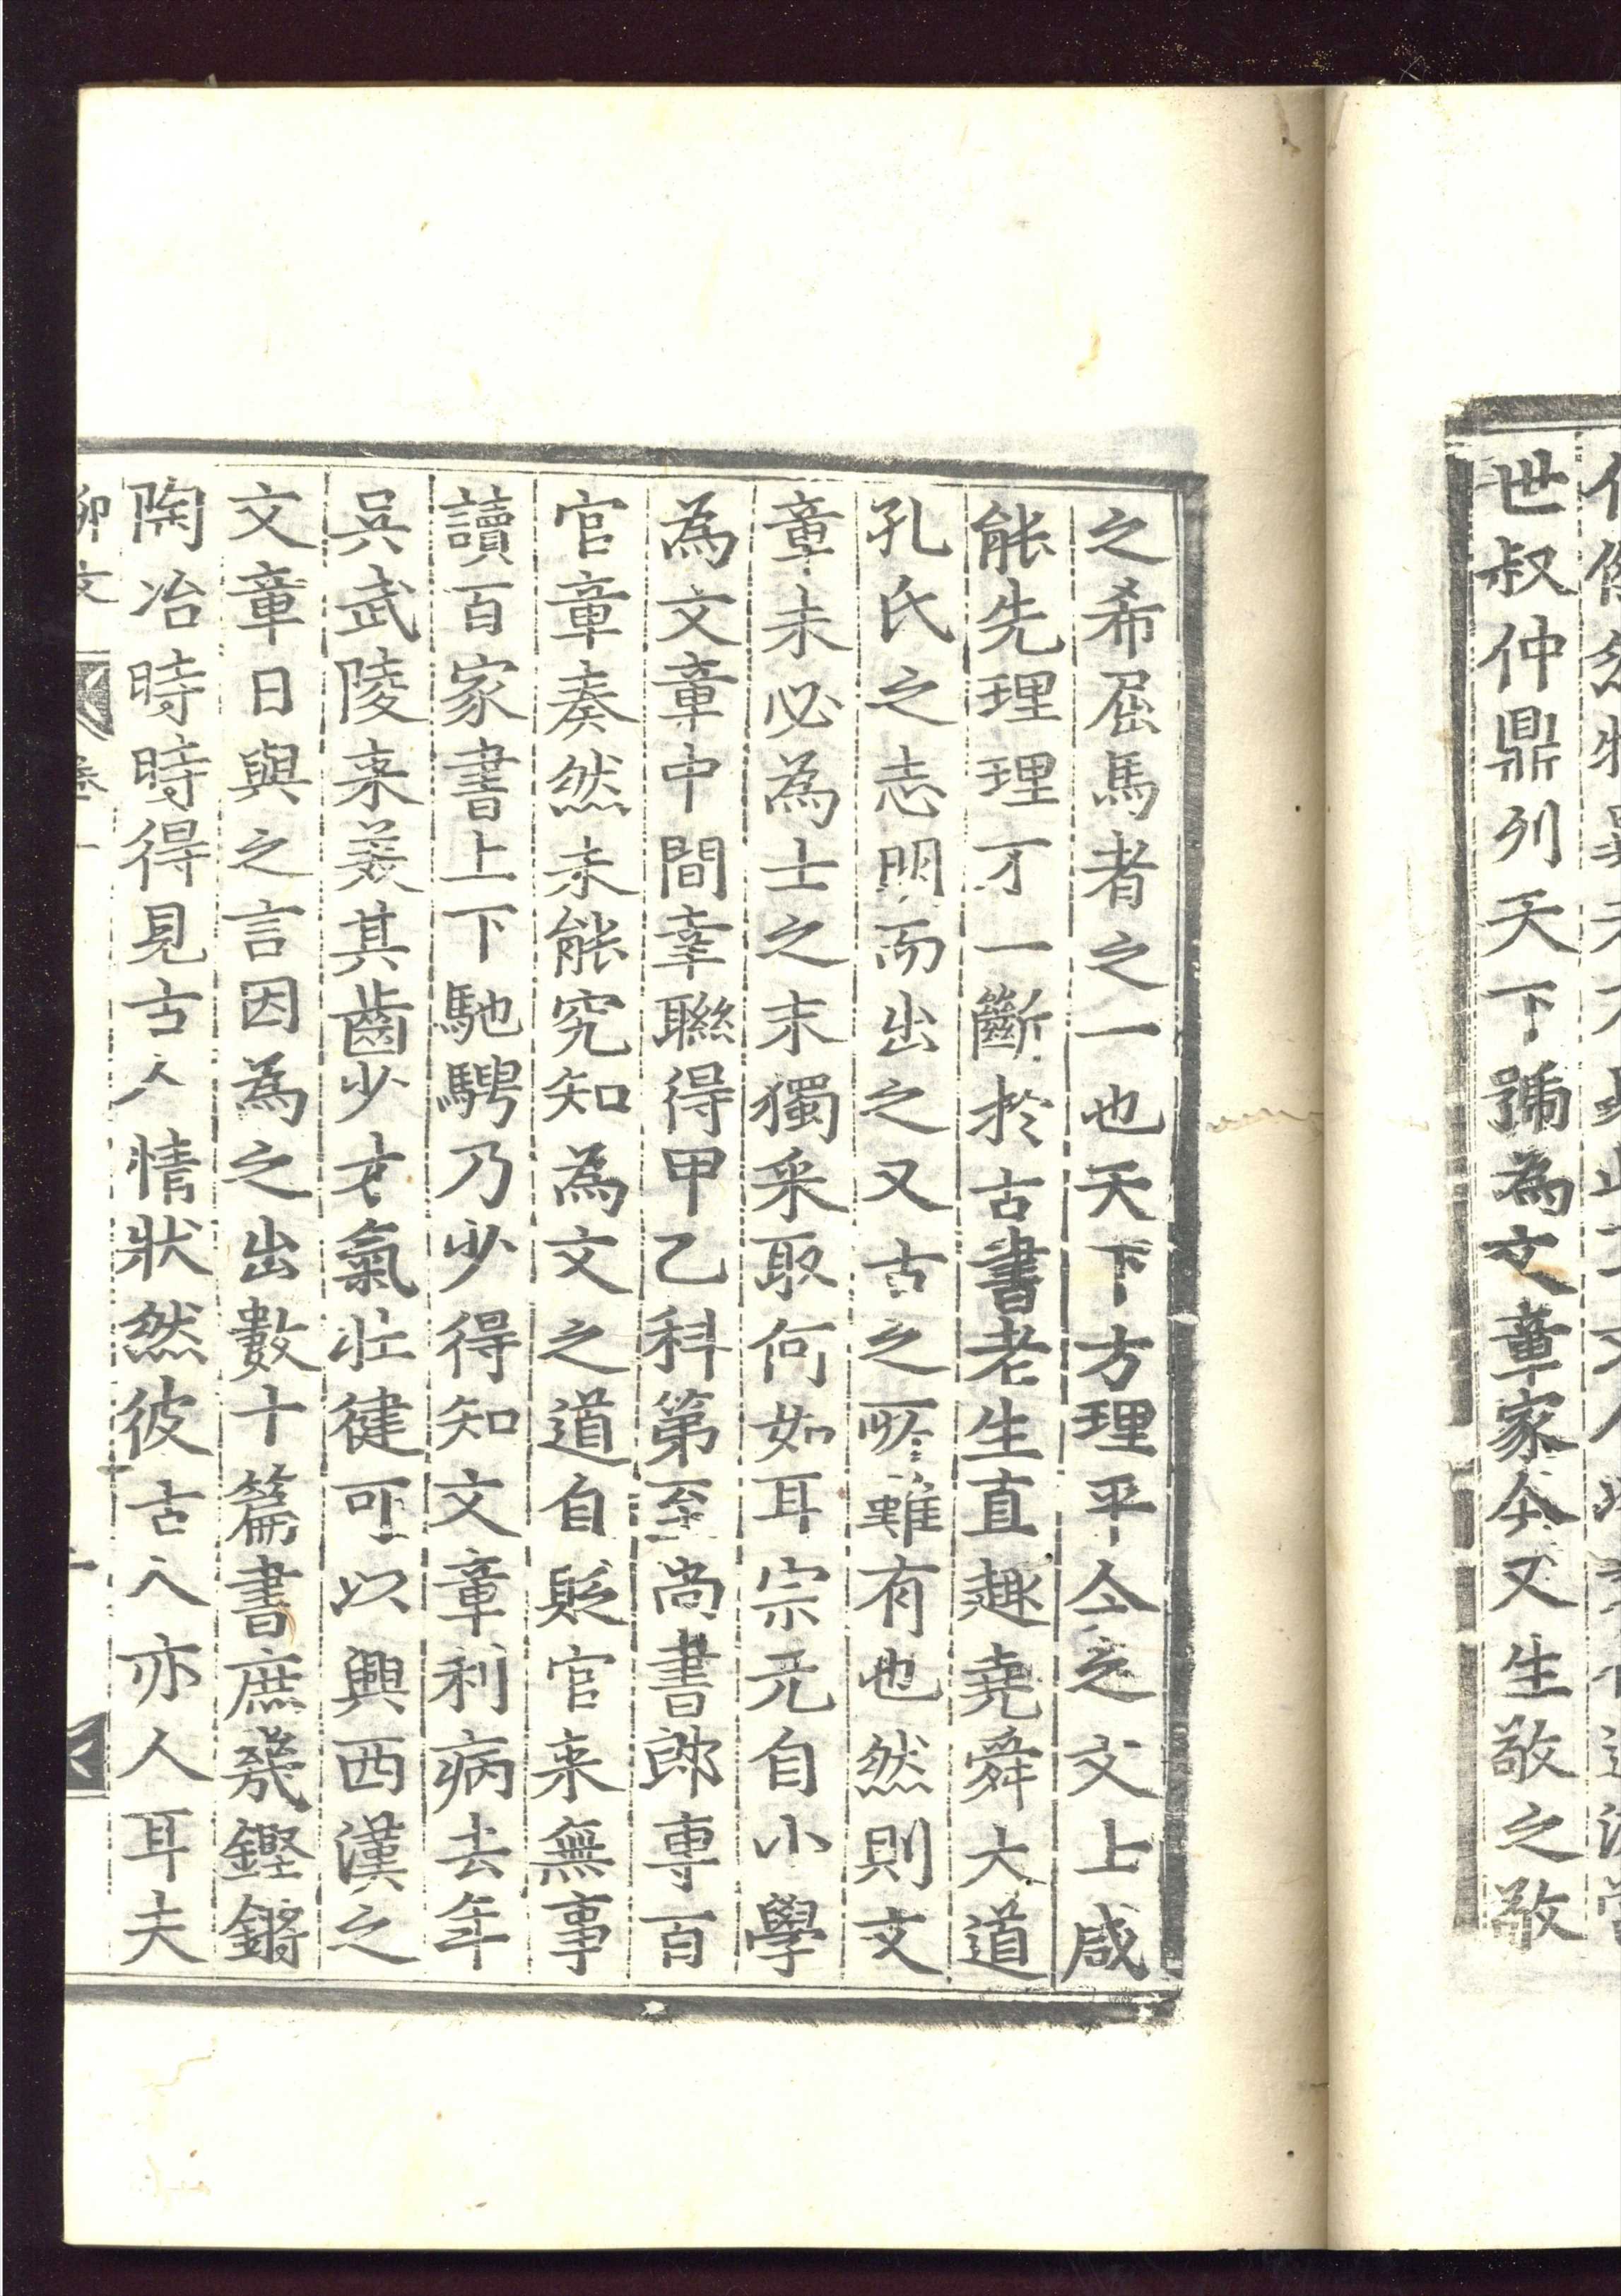 世叔仲鼎列天下號為文章家今又生敬之敬
之希屈馬者之一也天下方理平今之文士咸
能先理理不一斷於古書老生直趣堯舜大道
孔氏之志明而出之又古之所難有也然則文
章未必為士之末獨采取何如耳宗元自小學
為文章中間幸聯得甲乙科第至尚書郎專百
官章奏然未能究知為文之道自貶官来無事
讀百家書上下馳騁乃少得知文章利病去年
吳武陵来美其齒少才氣壯健可以興西漢之
文章日與之言因為之出數十篇書庶幾鏗鏘
陶冶時時得見古人情狀然彼古人亦人耳夫
柳文 卷